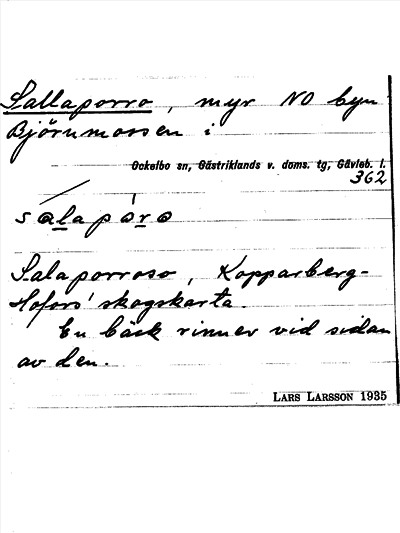 Sallaporro, myr NO byn
Björnmossen i
Ockelbo sn, Gästriklands v. doms. tg, Gävleb. l.
362
salaporo
Salaporroso, Kopparberg-
Hofors' skogskarta.
En bäck rinner vid sidan
av den.
LARS LARSSON 1935